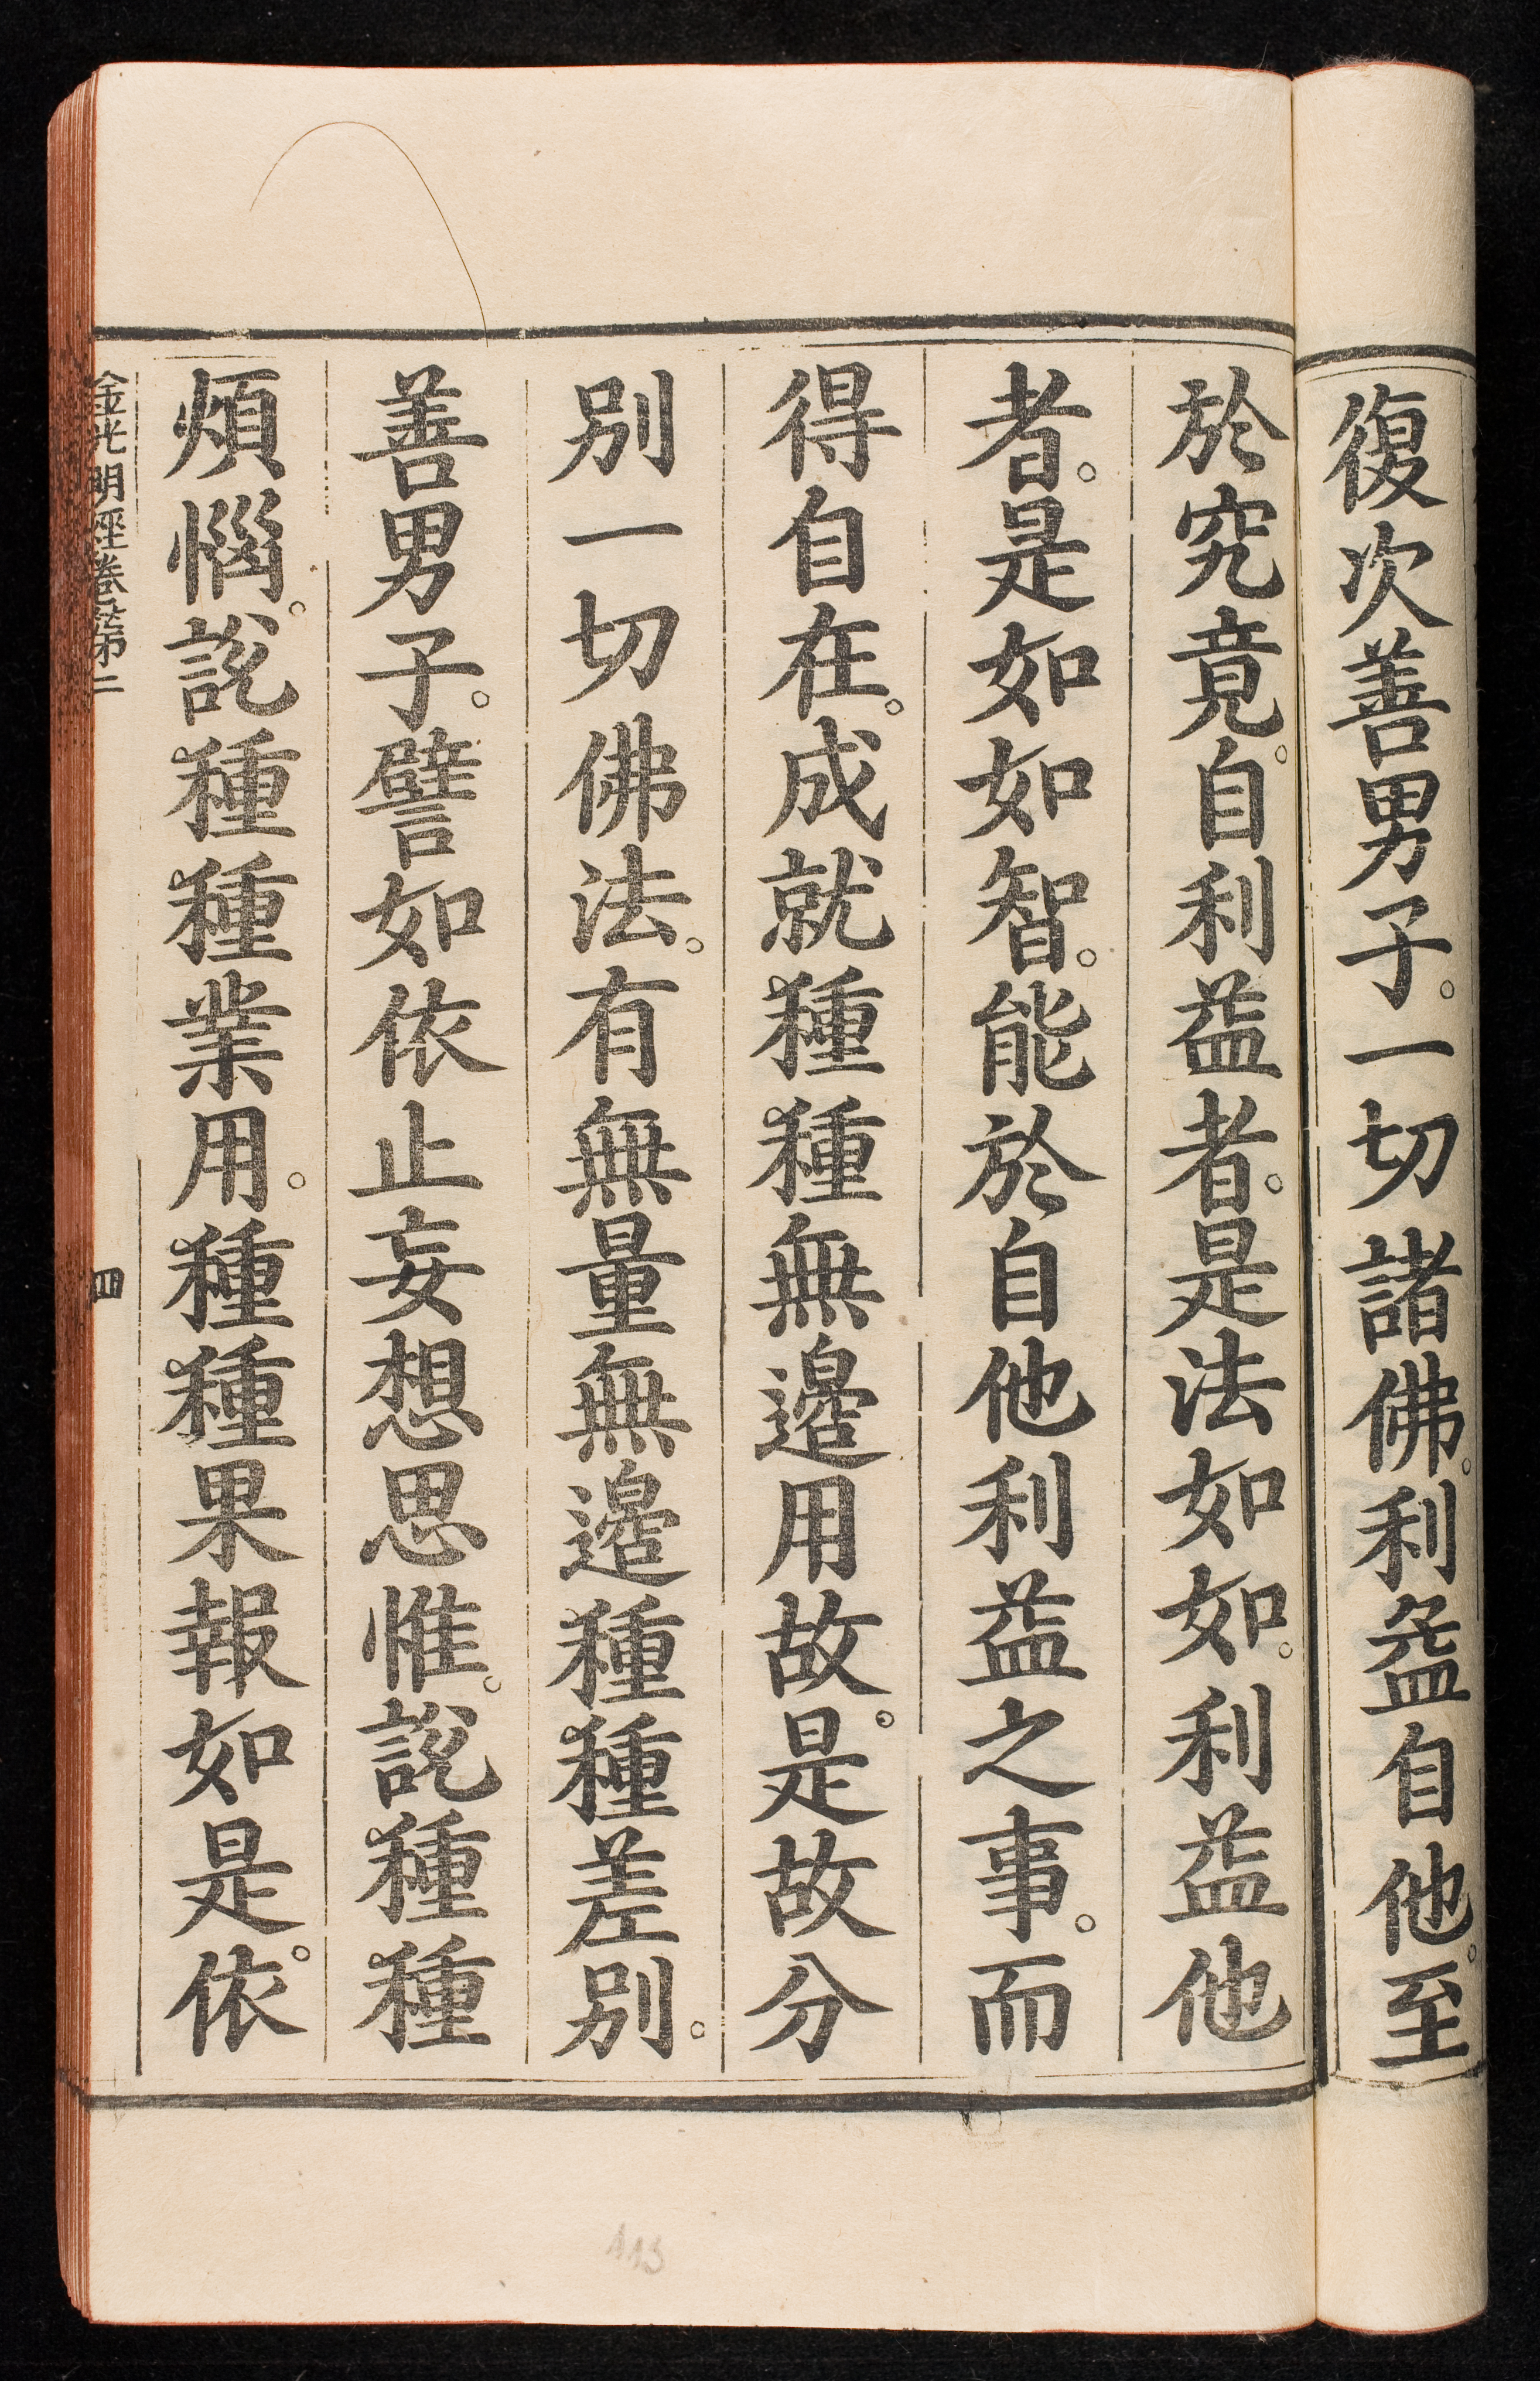 復次善男子。一切諸佛。利益自他。至
於究竟。自利益者。是法如如。利益他
者。是如如智。能於自他利益之事。而
得自在。成就種種無邊用故。是故分
別一切佛法。有無量無邊種種差別。
善男子。譬如依止妄想思惟。說種種
煩惱。說種種業用。種種果報如是。依
金光明經卷第二
四
113